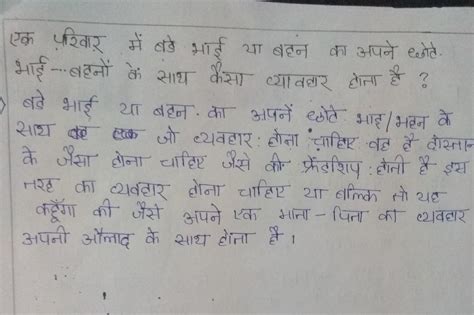 एक परिवार में बडे भाई या बहन का अपने छोटे
भाई--बहनों के साथ कैसा व्यावहार होना है ?
बडे भाई या बहन. का अपनें छोटे भाइ/भहन के
साथ जो व्यवहार : होना चाहिए वह है दोस्तान
के जैसा होना चाहिए जैसे की फ्रेंडशिप : होनी है इस
तरह का व्यवहार होना चाहिए या बल्कि तो यह
कहूँगा की जैसे अपने एक माना - पिना का व्यवहार
अपनी औलाद के साथ होना है ।